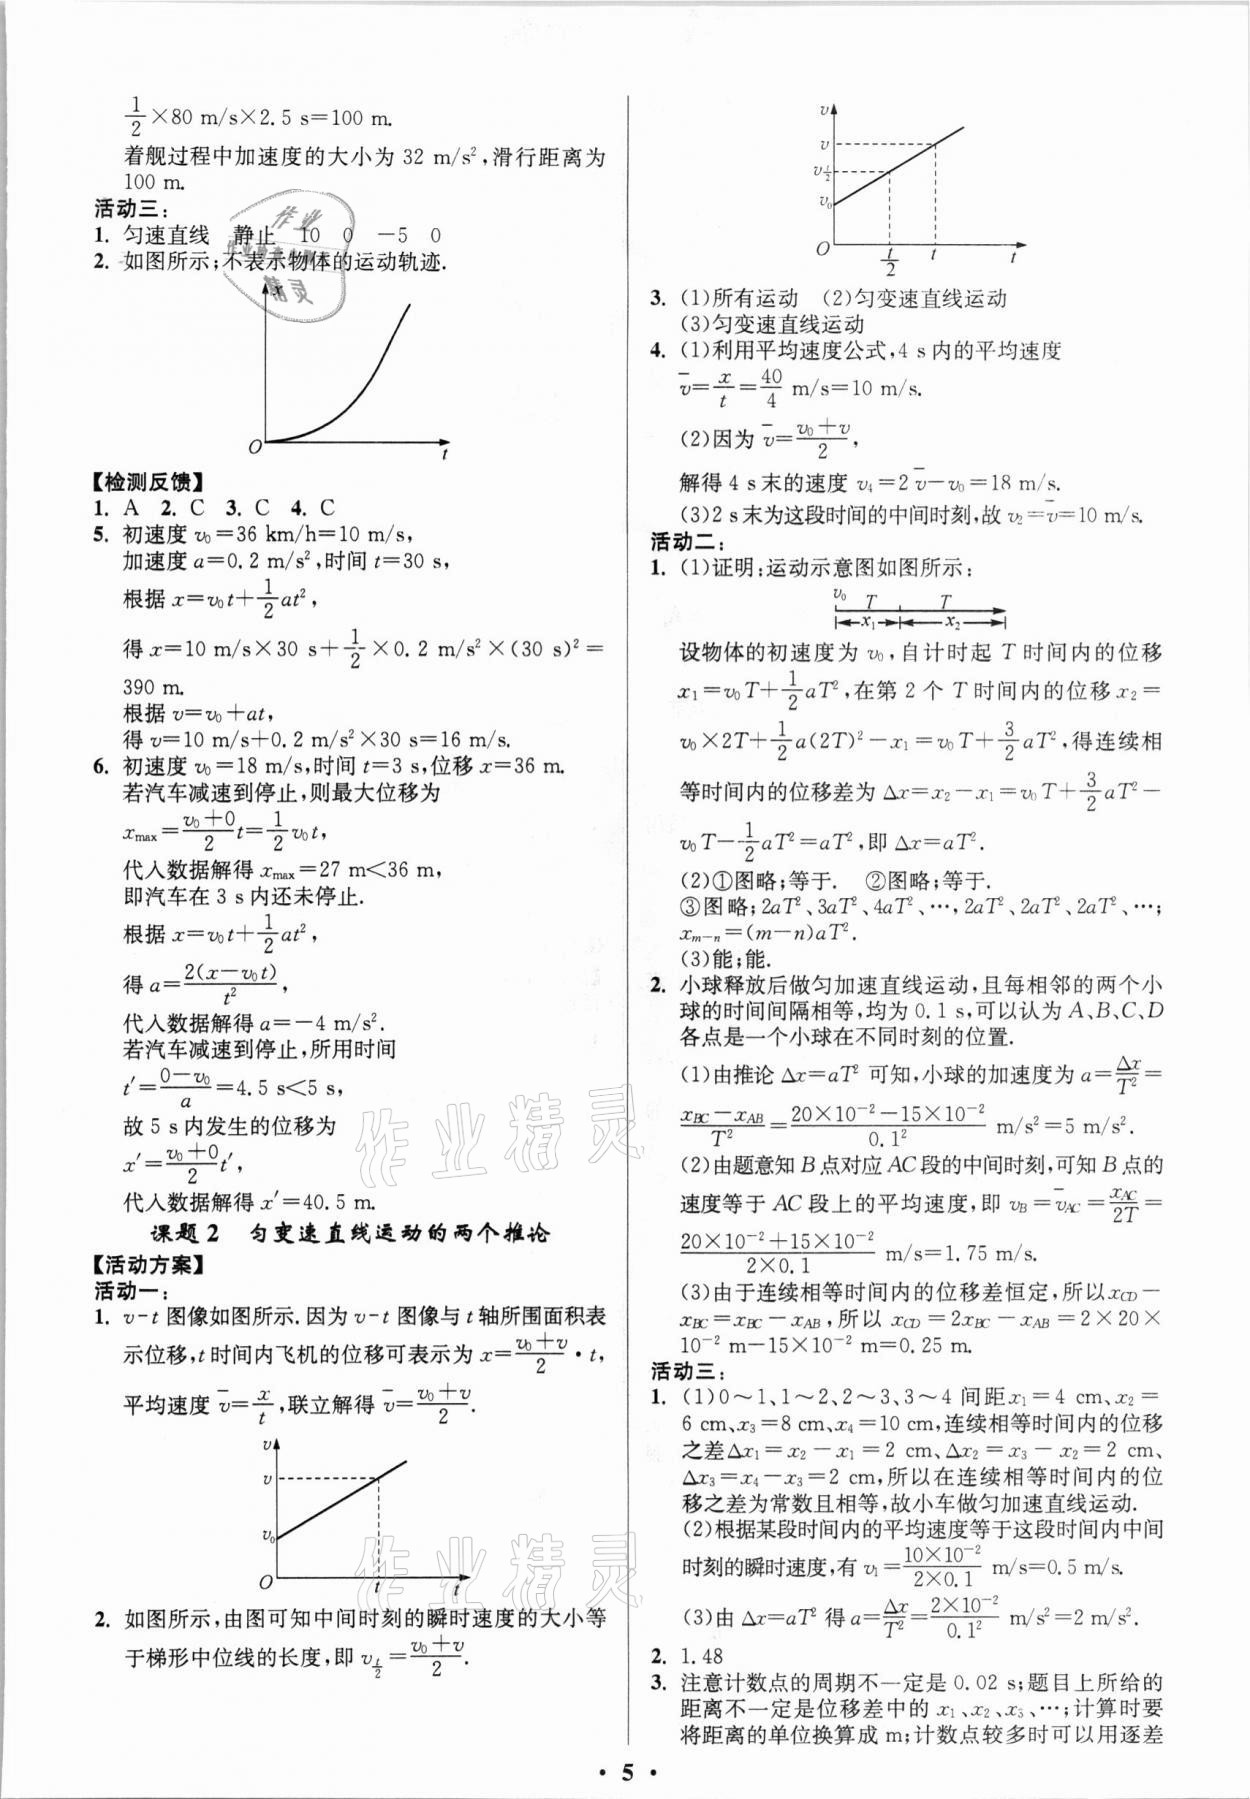 1/2×80 m/s×2.5 s=100 m.
着舰过程中加速度的大小为 32 m/s²,滑行距离为
100 m.
活动三:
1. 匀速直线 静止 10 0 −5 0
2. 如图所示;不表示物体的运动轨迹.
x
O
t
【检测反馈】
1. A 2. C 3. C 4. C
5. 初速度 v₀=36 km/h=10 m/s,
加速度 a=0.2 m/s²,时间 t=30 s,
根据 x=v₀t+1/2at²,
得 x=10 m/s×30 s+1/2×0.2 m/s²×(30 s)²=
390 m.
根据 v=v₀+at,
得 v=10 m/s+0.2 m/s²×30 s=16 m/s.
6. 初速度 v₀=18 m/s,时间 t=3 s,位移 x=36 m.
若汽车减速到停止,则最大位移为
xmax=(v₀+0)/2 t=1/2v₀t,
代入数据解得 xmax=27 m<36 m,
即汽车在 3 s 内还未停止.
根据 x=v₀t+1/2at²,
得 a=2(x−v₀t)/t²,
代入数据解得 a=−4 m/s².
若汽车减速到停止,所用时间
t′=(0−v₀)/a=4.5 s<5 s,
故 5 s 内发生的位移为
x′=(v₀+0)/2 t′,
代入数据解得 x′=40.5 m.
课题 2 匀变速直线运动的两个推论
【活动方案】
活动一:
1. v-t 图像如图所示. 因为 v-t 图像与 t 轴所围面积表
示位移,t 时间内飞机的位移可表示为 x=(v₀+v)/2·t,
平均速度 v̄=x/t,联立解得 v̄=(v₀+v)/2.
v
v
v₀
O
t
t
2. 如图所示,由图可知中间时刻的瞬时速度的大小等
于梯形中位线的长度,即 v_{t/2}=(v₀+v)/2.
v
v
v_{t/2}
v₀
O
t/2
t
t
3. (1)所有运动 (2)匀变速直线运动
(3)匀变速直线运动
4. (1)利用平均速度公式,4 s 内的平均速度
v̄=x/t=40/4 m/s=10 m/s.
(2)因为 v̄=(v₀+v)/2,
解得 4 s 末的速度 v₄=2v̄−v₀=18 m/s.
(3)2 s 末为这段时间的中间时刻,故 v₂=v̄=10 m/s.
活动二:
1. (1)证明:运动示意图如图所示:
v₀ T T
x₁ x₂
设物体的初速度为 v₀,自计时起 T 时间内的位移
x₁=v₀T+1/2aT²,在第 2 个 T 时间内的位移 x₂=
v₀×2T+1/2a(2T)²−x₁=v₀T+3/2aT²,得连续相
等时间内的位移差为 Δx=x₂−x₁=v₀T+3/2aT²−
v₀T−1/2aT²=aT²,即 Δx=aT².
(2)①图略;等于. ②图略;等于.
③图略;2aT²、3aT²、4aT²、…,2aT²、2aT²、2aT²、…;
x_{m−n}=(m−n)aT².
(3)能;能.
2. 小球释放后做匀加速直线运动,且每相邻的两个小
球的时间间隔相等,均为 0.1 s,可以认为 A、B、C、D
各点是一个小球在不同时刻的位置.
(1)由推论 Δx=aT² 可知,小球的加速度为 a=Δx/T²=
(x_BC−x_AB)/T²=(20×10⁻²−15×10⁻²)/0.1² m/s²=5 m/s².
(2)由题意知 B 点对应 AC 段的中间时刻,可知 B 点的
速度等于 AC 段上的平均速度,即 v_B=v̄_AC=x_AC/2T=
(20×10⁻²+15×10⁻²)/(2×0.1) m/s=1.75 m/s.
(3)由于连续相等时间内的位移差恒定,所以x_CD−
x_BC=x_BC−x_AB,所以 x_CD=2x_BC−x_AB=2×20×
10⁻² m−15×10⁻² m=0.25 m.
活动三:
1. (1)0～1、1～2、2～3、3～4 间距 x₁=4 cm、x₂=
6 cm、x₃=8 cm、x₄=10 cm,连续相等时间内的位移
之差Δx₁=x₂−x₁=2 cm、Δx₂=x₃−x₂=2 cm、
Δx₃=x₄−x₃=2 cm,所以在连续相等时间内的位
移之差为常数且相等,故小车做匀加速直线运动.
(2)根据某段时间内的平均速度等于这段时间内中间
时刻的瞬时速度,有 v₁=(10×10⁻²)/(2×0.1) m/s=0.5 m/s.
(3)由 Δx=aT² 得 a=Δx/T²=(2×10⁻²)/0.1² m/s²=2 m/s².
2. 1.48
3. 注意计数点的周期不一定是 0.02 s;题目上所给的
距离不一定是位移差中的 x₁、x₂、x₃、…;计算时要
将距离的单位换算成 m;计数点较多时可以用逐差
• 5 •
作业精灵
作业精灵
作业
精灵